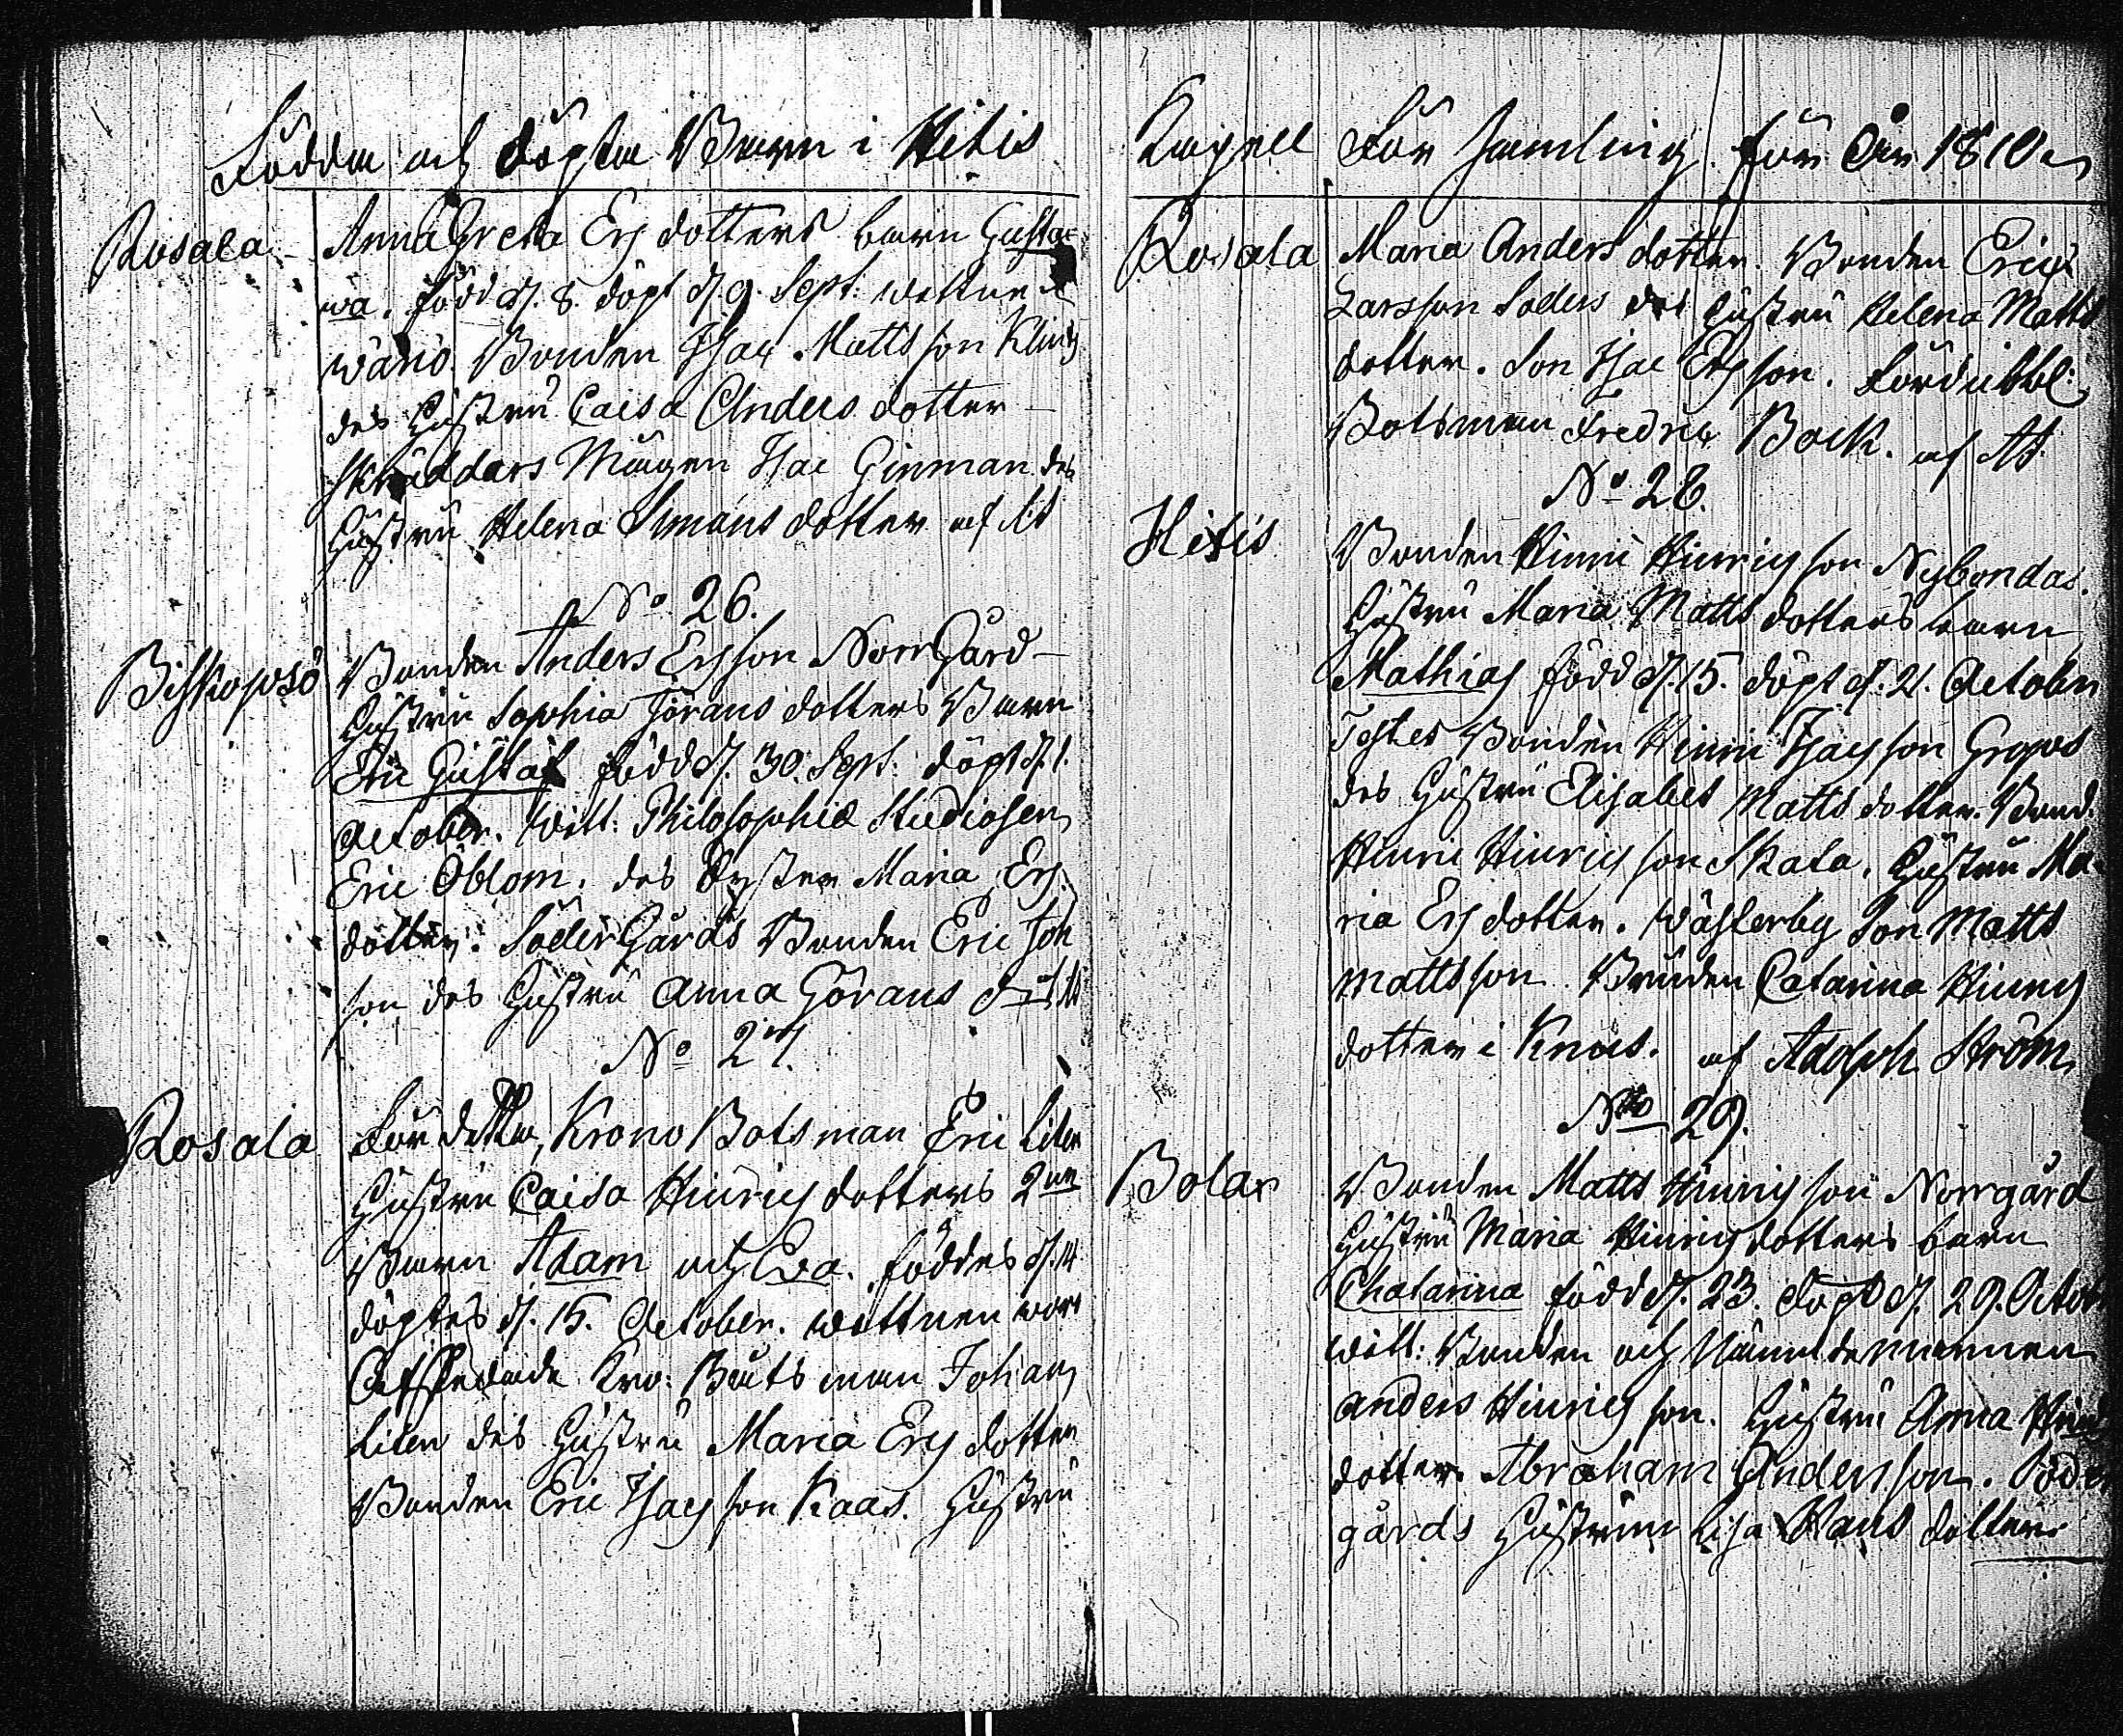 Födda och döpta Barn i Hitis
Rosala Anna Greta Ers dotters barn Gusta
wa. född d. 8. döpt d. 9. Sept: wittne
Wänö. Bonden Isac Mattsson Kling
des Hustru Caisa Anders dotter
Skräddars Mågen Isac Ginman des
Hustru Helena Simans dotter af AS
No 26.
Biskopsö Bonden Anders Ersson NorrGård
Hustru Sophia Jörans dotters Barn
Eric Gustaf född d. 30. Sept: döpt d. 1.
October. Witt: Philosophiæ Studiosen
Eric Öblom. des Syster Maria Ers
dotter. SöderGårds Bonden Eric Joh
son des Hustru Anna Görans
No 27.
Rosala För detta Krono Botsman Eric Liten
Hustru Caisa Hinrics dotters 2ne
Barn Adam och Eva. föddes d. 14
döptes d. 15. October. wittnen wors
Afskedade Kro: Båtsman Johan
Liten des Hustru Maria Erics dotter
Bonden Eric Isacsson Kaas. Hustru
Kapell För samling för År 1810
Rosala Maria Anders dotter. Bonden Erics
Larsson Söders des Hustru Helena Matts
dotter. Son Isac Ersson. Fördubbl:
Botsman Fredric Bock. af AS.
No 28.
Hitis Bonden Hinric Hinricsson Nybondas.
Hustru Maria Matts dotters barn
Mathias född d. 15. döpt d. 21. October
Testes Bonden Hinric Isacsson Grops
des Hustru Elisabet Matts dotter. Bond.
Hinric Hinricsson Skata. Hustru Ma-
ria Ers dotter. Wästerby Son Matts
Mattsson Bruden Catarina Hinrics
dotter i Knus. af Adolph Ström
No 29.
Bolax Bonden Matts Hinricsson Norrgård
Hustru Maria Hinrics dotters barn
Chatarina född d. 23. döpt d. 29. Octob
witt: Bonden och Nämndemannen
Anders Hinricsson. Hustru Anna Hinrics
dotter. Abraham Andersson. Söder
gårds Hustrun Lisa Hans dotter.